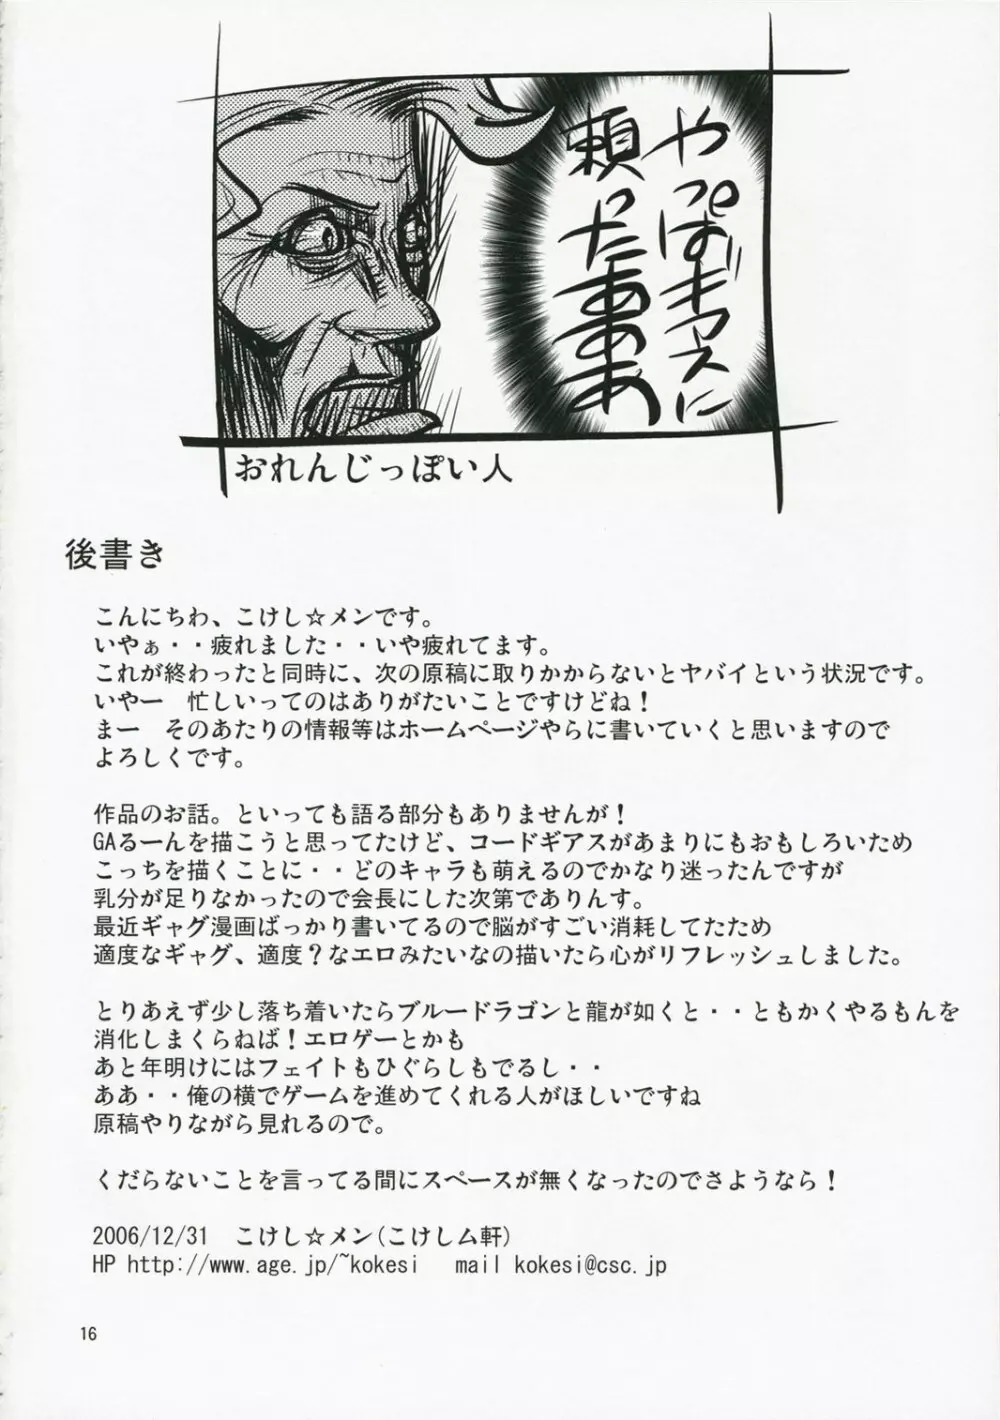 やっぱギアスに
頼ったあああ
おれんじっぽい人
後書き
こんにちわ、こけし☆メンです。
いやぁ・・疲れました・・いや疲れてます。
これが終わったと同時に、次の原稿に取りかからないとヤバイという状況です。
いやー　忙しいってのはありがたいことですけどね！
まー　そのあたりの情報等はホームページやらに書いていくと思いますので
よろしくです。
作品のお話。といっても語る部分もありませんが！
GAるーんを描こうと思ってたけど、コードギアスがあまりにもおもしろいため
こっちを描くことに・・どのキャラも萌えるのでかなり迷ったんですが
乳分が足りなかったので会長にした次第でありんす。
最近ギャグ漫画ばっかり書いてるので脳がすごい消耗してたため
適度なギャグ、適度？なエロみたいなの描いたら心がリフレッシュしました。
とりあえず少し落ち着いたらブルードラゴンと龍が如くと・・ともかくやるもんを
消化しまくらねば！エロゲーとかも
あと年明けにはフェイトもひぐらしもでるし・・
ああ・・俺の横でゲームを進めてくれる人がほしいですね
原稿やりながら見れるので。
くだらないことを言ってる間にスペースが無くなったのでさようなら！
2006/12/31　こけし☆メン(こけしム軒)
HP http://www.age.jp/~kokesi　mail kokesi@csc.jp
16